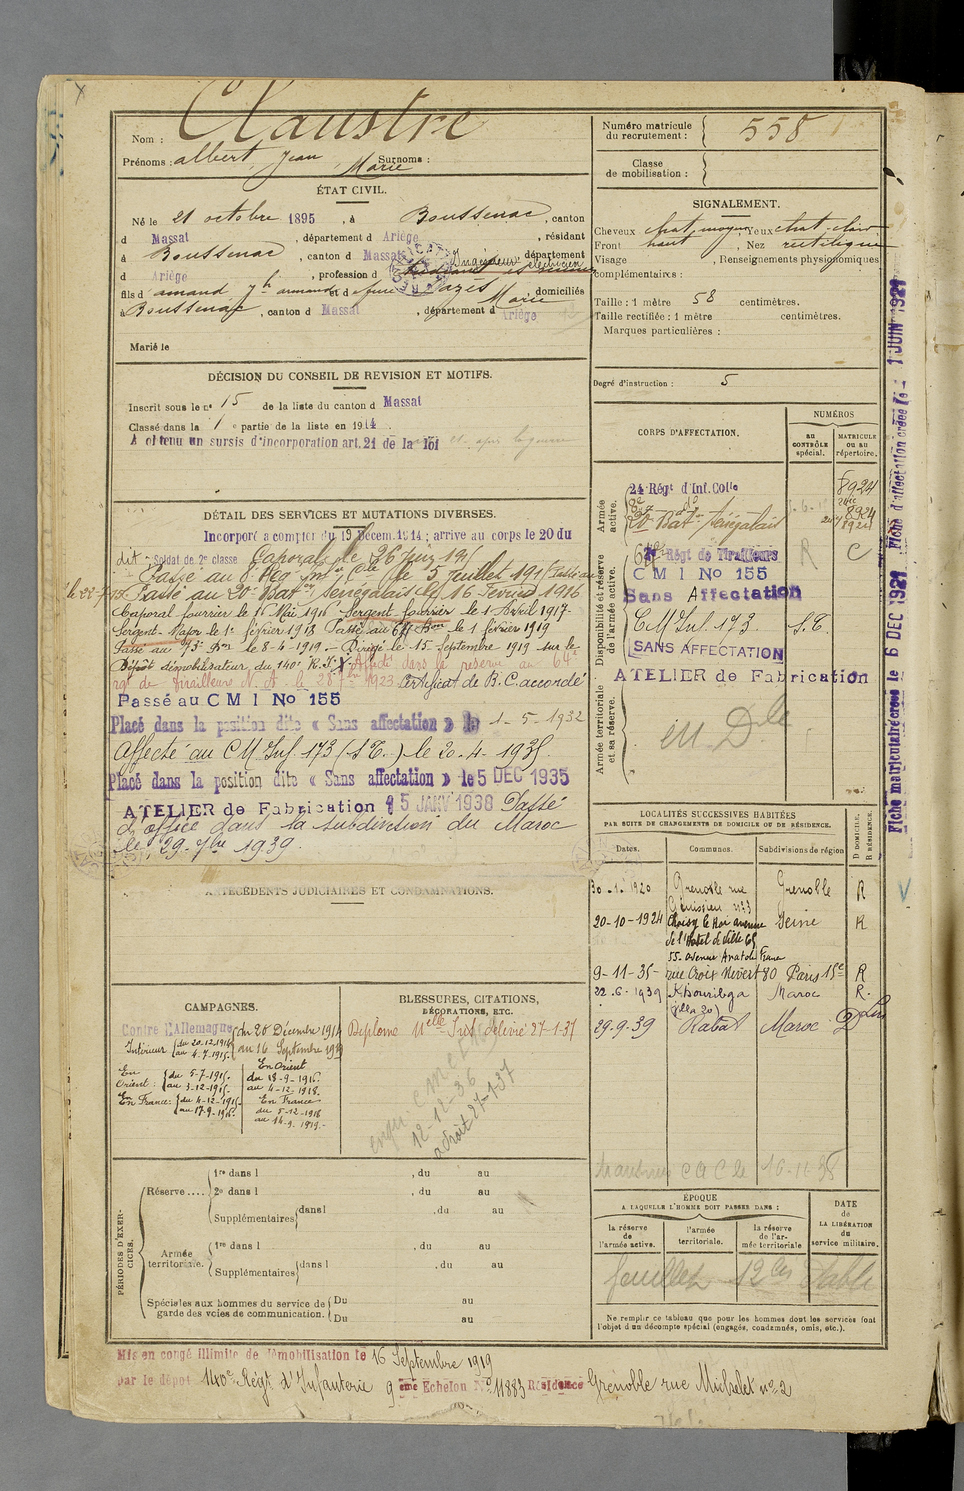 Claustre
Nom :
Prénoms : albert Jean Marie Surnoms :
ÉTAT CIVIL.
Né le 21 octobre 1895, à Boussenac, canton
d Massat, département d Ariège, résidant
à Boussenac, canton d Massat, département
d Ariège, profession d Ingénieur électricien
fils d armand et d Cazès Marie, domiciliés
à Boussenac, canton d Massat, département d Ariège
Marié le
DÉCISION DU CONSEIL DE REVISION ET MOTIFS.
Inscrit sous le n° 15 de la liste du canton d Massat
Classé dans la 1e partie de la liste en 1914
A obtenu un sursis d'incorporation art. 21 de la loi
DÉTAIL DES SERVICES ET MUTATIONS DIVERSES.
Incorporé à compter du 19 Décem. 1914 ; arrivé au corps le 20 du
dit - Soldat de 2e classe Caporal le 26 Juin 191
Passé au 8e Rég le 5 Juillet 191 Passé au
Passé au 20e Batn Sénégalais le 16 Février 1916
Caporal fourrier le 16 Mai 1916 Sergent fourrier le 1 Avril 1917
Sergent-Major le 1er février 1918 Passé au 64e Bon le 1 février 1919
Passé au 75e Bon le 8-4-1919 - Dirigé le 15 Septembre 1919 sur le
Dépôt démobilisateur du 140e R.I. Affecté dans la réserve au 64e
rgt de Tirailleurs N.A. le 28 1923 Certificat de B.C. accordé
Passé au C M I No 155
Placé dans la position dite « Sans affectation » le 1-5-1932
Affecté au C M Inf 173 (S.E.) le 20.4.1935
Placé dans la position dite « Sans affectation » le 5 DEC 1935
ATELIER de Fabrication 15 JANV 1938 Passé
d'office dans la subdivision du Maroc
le 29-7bre 1939.
ANTÉCÉDENTS JUDICIAIRES ET CONDAMNATIONS.
CAMPAGNES.
Contre l'Allemagne du 20 Décembre 1914
au 16 Septembre 1919
Intérieur du 20-12-1914
au 4-7-1915
En Orient : du 5-7-1915
au 3-12-1915
En France : du 4-12-1915
au 17-9-1916
En Orient
du 18-9-1916
au 4-12-1918
En France
du 5-12-1918
au 16-9-1919
BLESSURES, CITATIONS,
DÉCORATIONS, ETC.
Diplôme délivré 27-1-37
12-12-36
27-1-37
PÉRIODES D'EXERCICES.
Réserve ....
1re dans l , du au
2e dans l , du au
Supplémentaires dans l , du au
Armée territoriale.
1re dans l , du au
Supplémentaires dans l , du au
Spéciales aux hommes du service de garde des voies de communication.
Du au
Du au
Mis en congé illimité de démobilisation le 16 Septembre 1919
par le dépôt 140e Régt d'Infanterie 9eme Echelon No 11883 Résidence Grenoble rue Michelet no 2
Numéro matricule
du recrutement : 558
Classe
de mobilisation :
SIGNALEMENT.
Cheveux chat. moyen, Yeux chat. clair
Front haut, Nez rectiligne
Visage , Renseignements physiognomiques
complémentaires :
Taille : 1 mètre 58 centimètres.
Taille rectifiée : 1 mètre centimètres.
Marques particulières :
Degré d'instruction : 5
CORPS D'AFFECTATION.
NUMÉROS
AU CONTRÔLE spécial.
MATRICULE OU AU répertoire.
Armée active.
24 Régt d'Inf. Colle
8924
8e do
8924
20e Batn Sénégalais
8924
Disponibilité et réserve de l'armée active.
64e Régt de Tirailleurs
R
C
C M I No 155
Sans Affectation
C M Inf. 173. S.E.
SANS AFFECTATION
ATELIER de Fabrication
Armée territoriale et sa réserve.
en Dle
LOCALITÉS SUCCESSIVES HABITÉES
PAR SUITE DE CHANGEMENTS DE DOMICILE OU DE RÉSIDENCE.
Dates. Communes. Subdivisions de région D DOMICILE. R RÉSIDENCE.
30-1-1920 Grenoble rue Grenoble R
n°33
20-10-1924 Choisy le Roi avenue Seine R
de l'Hotel de Ville 65
55. avenue Anatole France
9-11-35- rue Croix Nivert 80 Paris 15e R
22-6-1939 Khouribga Maroc R.
(villa 20)
29.9.39 Rabat Maroc D
16-11-38
ÉPOQUE
A LAQUELLE L'HOMME DOIT PASSER DANS :
la réserve de l'armée active.
l'armée territoriale.
la réserve de l'armée territoriale
DATE de LA LIBÉRATION du service militaire.
feuillet 12 bis établi
Ne remplir ce tableau que pour les hommes dont les services font
l'objet d'un décompte spécial (engagés, condamnés, omis, etc.).
Fiche matriculaire créée le 6 DEC 1921 Fiche d'affectation créée le 1 JUIN 1921